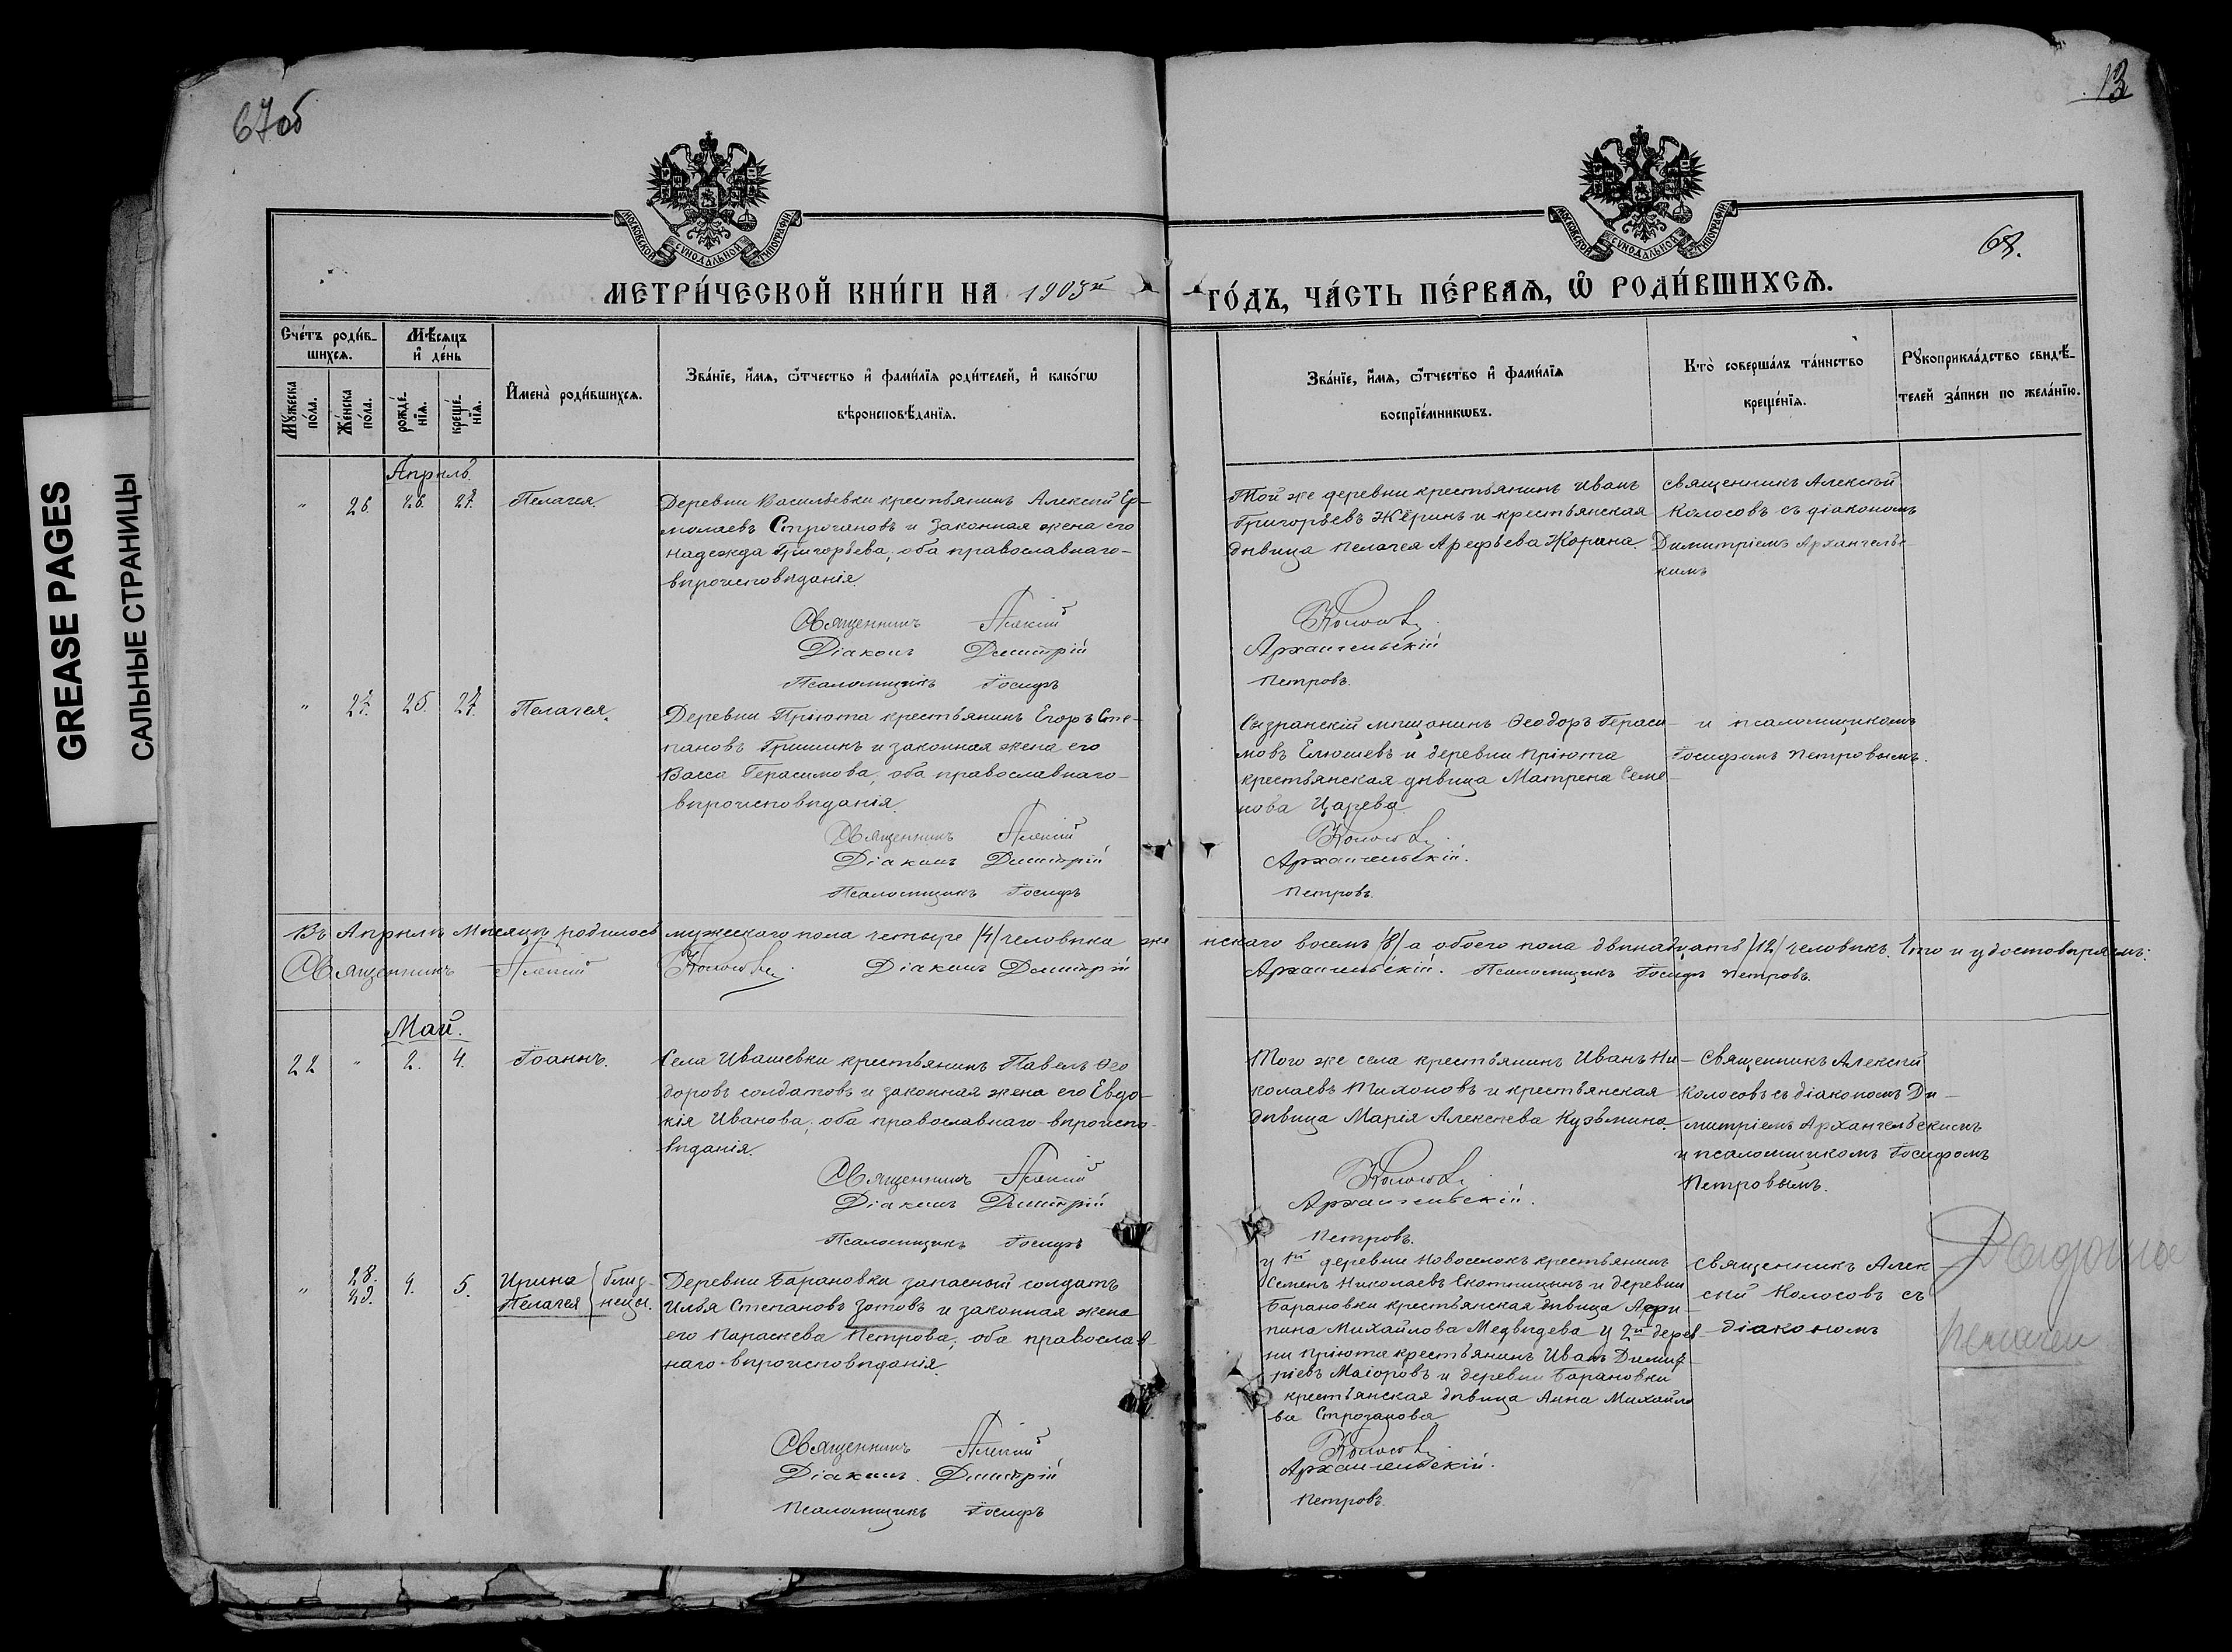 67об
13
68.
МОСКОВСКОЙ СѴНОДАЛЬНОЙ ТИПОГРАФІИ
МОСКОВСКОЙ СѴНОДАЛЬНОЙ ТИПОГРАФІИ
МЕТРИ́ЧЕСКОЙ КНИ́ГИ НА 1903й
ГО́ДЪ, ЧА́СТЬ ПЕ́РВАѦ, Ѿ РОДИ́ВШИХСѦ.
Сче́тъ роди́в-
шихсѧ.
Мѣ́сѧцъ
и҆ де́нь
Мꙋ́жеска
по́ла.
Же́нска
по́ла.
рожде́-
нїѧ.
креще́-
нїѧ.
И҆мена̀ роди́вшихсѧ.
Зва́нїе, и҆́мѧ, ѻ҆́тчество и҆ фами́лїѧ роди́телей, и҆ како́гѡ
вѣроисповѣ́данїѧ.
Зва́нїе, и҆́мѧ, ѻ҆́тчество и҆ фами́лїѧ
воспрїе́мникѡвъ.
Кто̀ соверша́лъ та́инство
креще́нїѧ.
Рꙋкоприкла́дство свидѣ́-
телей за́писи по жела́нїю.
Апрѣль.
" 26. 26. 27. Пелагея.
Деревни Васильевки крестьянинъ Алексѣй Ер-
молаевъ Строгановъ и законная жена его
Надежда Григорьева, оба православнаго-
вѣроисповѣданія.
Священникъ Алексій
Діаконъ Димитрій
Псаломщикъ Іосифъ
Той же деревни крестьянинъ Иванъ
Григорьевъ Жёринъ и крестьянская
дѣвица Пелагея Арефьева Жорина.
Колосовъ.
Архангельскій
Петровъ.
Священникъ Алексѣй
Колосовъ съ діакономъ
Димитріемъ Архангельс
кимъ
" 27. 25. 27. Пелагея.
Деревни Пріюта крестьянинъ Егоръ Сте-
пановъ Гришинъ и законная жена его
Васса Герасимова, оба православнаго-
вѣроисповѣданія.
Священникъ Алексій
Діаконъ Димитрій
Псаломщикъ Іосифъ
Сызранскій мѣщанинъ Ѳеодоръ Гераси-
мовъ Елюшевъ и деревни Пріюта
крестьянская дѣвица Матрена Семе-
нова Царева.
Колосовъ.
Архангельскій.
Петровъ.
и псаломщикомъ
Іосифомъ Петровымъ.
Въ Апрѣлѣ Мѣсяцѣ родилось мужескаго пола четыре /4/ человѣка же
нскаго восемь /8/ а обоего пола двѣнадцать /12/ человѣкъ. Что и удостовѣряемъ:
Священникъ Алексій Колосовъ. Діаконъ Димитрій
Архангельскій. Псаломщикъ Іосифъ Петровъ.
Май.
22 " 2. 4. Іоаннъ.
Села Ивашевки крестьянинъ Павелъ Ѳео
доровъ солдатовъ и законная жена его Евдо-
кія Иванова, оба православнаго-вѣроиспо-
вѣданія.
Священникъ Алексій
Діаконъ Димитрій
Псаломщикъ Іосифъ
Того же села крестьянинъ Иванъ Ни-
колаевъ Тихоновъ и крестьянская
дѣвица Марія Алексѣева Кузьмина.
Колосовъ.
Архангельскій.
Петровъ.
Священникъ Алексѣй
Колосовъ съ діакономъ Ди-
митріемъ Архангельскимъ
и псаломщикомъ Іосифомъ
Петровымъ.
" 28. 29. 4. 5. Ирина Пелагея } близ-
нецы.
Деревни Барановки запасный солдатъ
Илья Степановъ Зотовъ и законная жена
его Параскева Петрова, оба православ-
наго-вѣроисповѣданія.
Священникъ Алексій
Діаконъ Димитрій
Псаломщикъ Іосифъ
у 1й деревни Новоселокъ крестьянинъ
Семенъ Николаевъ Скотницынъ и деревни
Барановки крестьянская дѣвица Агри-
пина Михайлова Медвѣдева у 2й дерев-
ни Пріюта крестьянинъ Иванъ Димит-
ріевъ Маіоровъ и деревни Барановки
крестьянская дѣвица Анна Михайло
ва Строганова
Колосовъ.
Архангельскій.
Петровъ.
Священникъ Алек-
сѣй Колосовъ съ
діакономъ
Пелагеи
GREASE PAGES
САЛЬНЫЕ СТРАНИЦЫ